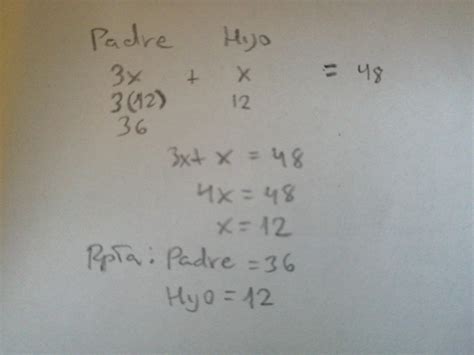 Padre Hijo
3x + x = 48
3(12) 12
36
3x+ x = 48
4x = 48
x = 12
Rpta: Padre = 36
Hijo = 12